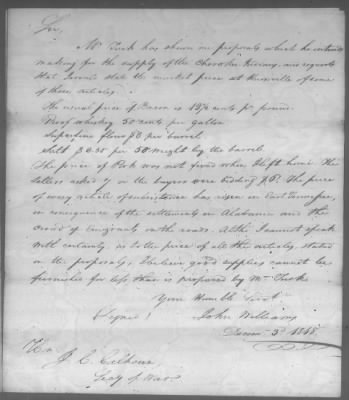 Sir,
Mr Tuck has shown me proposals which he intends
making for the supply of the Cherokee Kiving, and requests
that I would state the market price at Knoxville of some
of these articles.
The usual price of Bacon is 12½ cents pr pound.
Proof whiskey 50 cents per gallon
Superfine flour $8 per barrel
Salt $6.25 per 50 weight by the barrel
The price of Pork was not fixed when I left home. The
sellers asked 7 or the buyers were bidding $5. The price
of every article of subsistence has risen in East Tennessee,
in consequence of the settlements in Alabama and the
crowd of emigrants on the roads. Altho I cannot speak
with certainty as to the price of all the articles stated
in the proposals, I believe good supplies cannot be
furnished for less than is proposed by Mr Tuck
Your Humble Servt
Signed John Williams
Decem 3d 1818
Hon
J. C. Calhoun
Secy of War